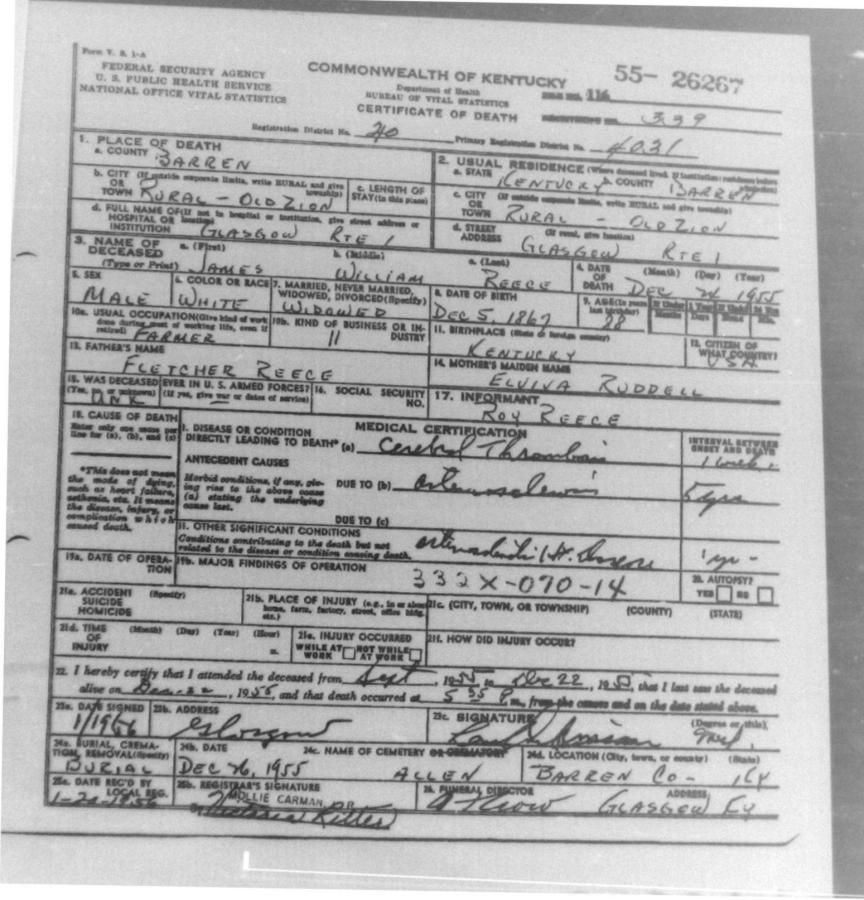 Form V. S. 1-A
FEDERAL SECURITY AGENCY
U. S. PUBLIC HEALTH SERVICE
NATIONAL OFFICE VITAL STATISTICS
COMMONWEALTH OF KENTUCKY
Department of Health
BUREAU OF VITAL STATISTICS
CERTIFICATE OF DEATH
55- 26267
116
339
Registration District No. 20 Primary Registration District No. 4031
1. PLACE OF DEATH
a. COUNTY BARREN
2. USUAL RESIDENCE (Where deceased lived. If institution: residence before
a. STATE KENTUCKY b. COUNTY BARREN
b. CITY (If outside corporate limits, write RURAL and give township)
OR TOWN RURAL - OLD ZION
c. LENGTH OF STAY (in this place)
c. CITY (If outside corporate limits, write RURAL and give township)
OR TOWN RURAL - OLD ZION
d. FULL NAME OF (If not in hospital or institution, give street address or location)
HOSPITAL OR INSTITUTION GLASGOW RTE 1
d. STREET ADDRESS (If rural, give location)
GLASGOW RTE 1
3. NAME OF DECEASED (Type or Print)
a. (First) b. (Middle) c. (Last)
JAMES WILLIAM REECE
4. DATE OF DEATH (Month) (Day) (Year)
DEC 24 1955
5. SEX
MALE
6. COLOR OR RACE
WHITE
7. MARRIED, NEVER MARRIED, WIDOWED, DIVORCED (Specify)
WIDOWED
8. DATE OF BIRTH
DEC 5, 1867
9. AGE (In years last birthday)
88
If Under 1 Year If Under 24 Hrs.
Months Days Hours Min.
10a. USUAL OCCUPATION (Give kind of work done during most of working life, even if retired)
FARMER
10b. KIND OF BUSINESS OR INDUSTRY
11
11. BIRTHPLACE (State or foreign country)
KENTUCKY
12. CITIZEN OF WHAT COUNTRY?
USA
13. FATHER'S NAME
FLETCHER REECE
14. MOTHER'S MAIDEN NAME
ELVIVA RUDDELL
15. WAS DECEASED EVER IN U. S. ARMED FORCES?
(Yes, no, or unknown) (If yes, give war or dates of service)
UNK
16. SOCIAL SECURITY NO.
17. INFORMANT
ROY REECE
18. CAUSE OF DEATH
Enter only one cause per line for (a), (b), and (c)
*This does not mean the mode of dying, such as heart failure, asthenia, etc. It means the disease, injury, or complication which caused death.
MEDICAL CERTIFICATION
INTERVAL BETWEEN ONSET AND DEATH
I. DISEASE OR CONDITION DIRECTLY LEADING TO DEATH* (a) Cerebral Thrombosis 1 week
ANTECEDENT CAUSES
Morbid conditions, if any, giving rise to the above cause (a) stating the underlying cause last.
DUE TO (b) arteriosclerosis 5 yrs
DUE TO (c)
II. OTHER SIGNIFICANT CONDITIONS
Conditions contributing to the death but not related to the disease or condition causing death.
1 yr -
19a. DATE OF OPERATION
19b. MAJOR FINDINGS OF OPERATION
332X-070-14
20. AUTOPSY?
YES NO
21a. ACCIDENT SUICIDE HOMICIDE (Specify)
21b. PLACE OF INJURY (e.g., in or about home, farm, factory, street, office bldg. etc.)
21c. (CITY, TOWN, OR TOWNSHIP) (COUNTY) (STATE)
21d. TIME OF INJURY (Month) (Day) (Year) (Hour) m.
21e. INJURY OCCURRED
WHILE AT WORK NOT WHILE AT WORK
21f. HOW DID INJURY OCCUR?
22. I hereby certify that I attended the deceased from Sept, 1955 to Dec 22, 1955, that I last saw the deceased
alive on Dec-22, 1955, and that death occurred at 5 35 P m., from the causes and on the date stated above.
23a. DATE SIGNED
23b. ADDRESS
Glasgow
23c. SIGNATURE (Degree or title)
24a. BURIAL, CREMATION, REMOVAL (Specify)
BURIAL
24b. DATE
DEC 26, 1955
24c. NAME OF CEMETERY OR CREMATORY
ALLEN
24d. LOCATION (City, town, or county) (State)
BARREN CO- KY
25a. DATE REC'D BY LOCAL REG.
25b. REGISTRAR'S SIGNATURE
MOLLIE CARMAN
26. FUNERAL DIRECTOR ADDRESS
GLASGOW KY